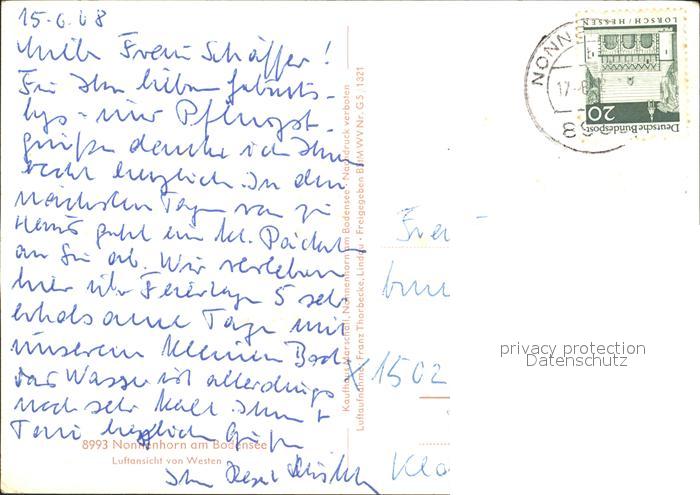 15-6.68
Liebe Frau Schäffer!
Für Ihre lieben Geburts-
tags- und Pfingst-
grüße danke ich Ihnen
recht herzlich. In den
nächsten Tagen von zu
Haus geht ein kl. Päckchen
an Sie ab. Wir verleben
hier über Feiertage 5 sehr
erholsame Tage mit
unserem kleinen
das Wasser ist allerdings
noch sehr kalt. Ihnen +
herzlichen Grüßen
Ihre
8993 Nonnenhorn am Bodensee
Luftansicht von Westen
Kaufhaus Marschall, Nonnenhorn am Bodensee · Nachdruck verboten
Luftaufnahme: Franz Thorbecke, Lindau · Freigegeben BStM WV Nr. G 5 1321
NONN
17.-6
89
LORSCH/HESSEN
20
Deutsche Bundespost
Frau
1502
privacy protection
Datenschutz